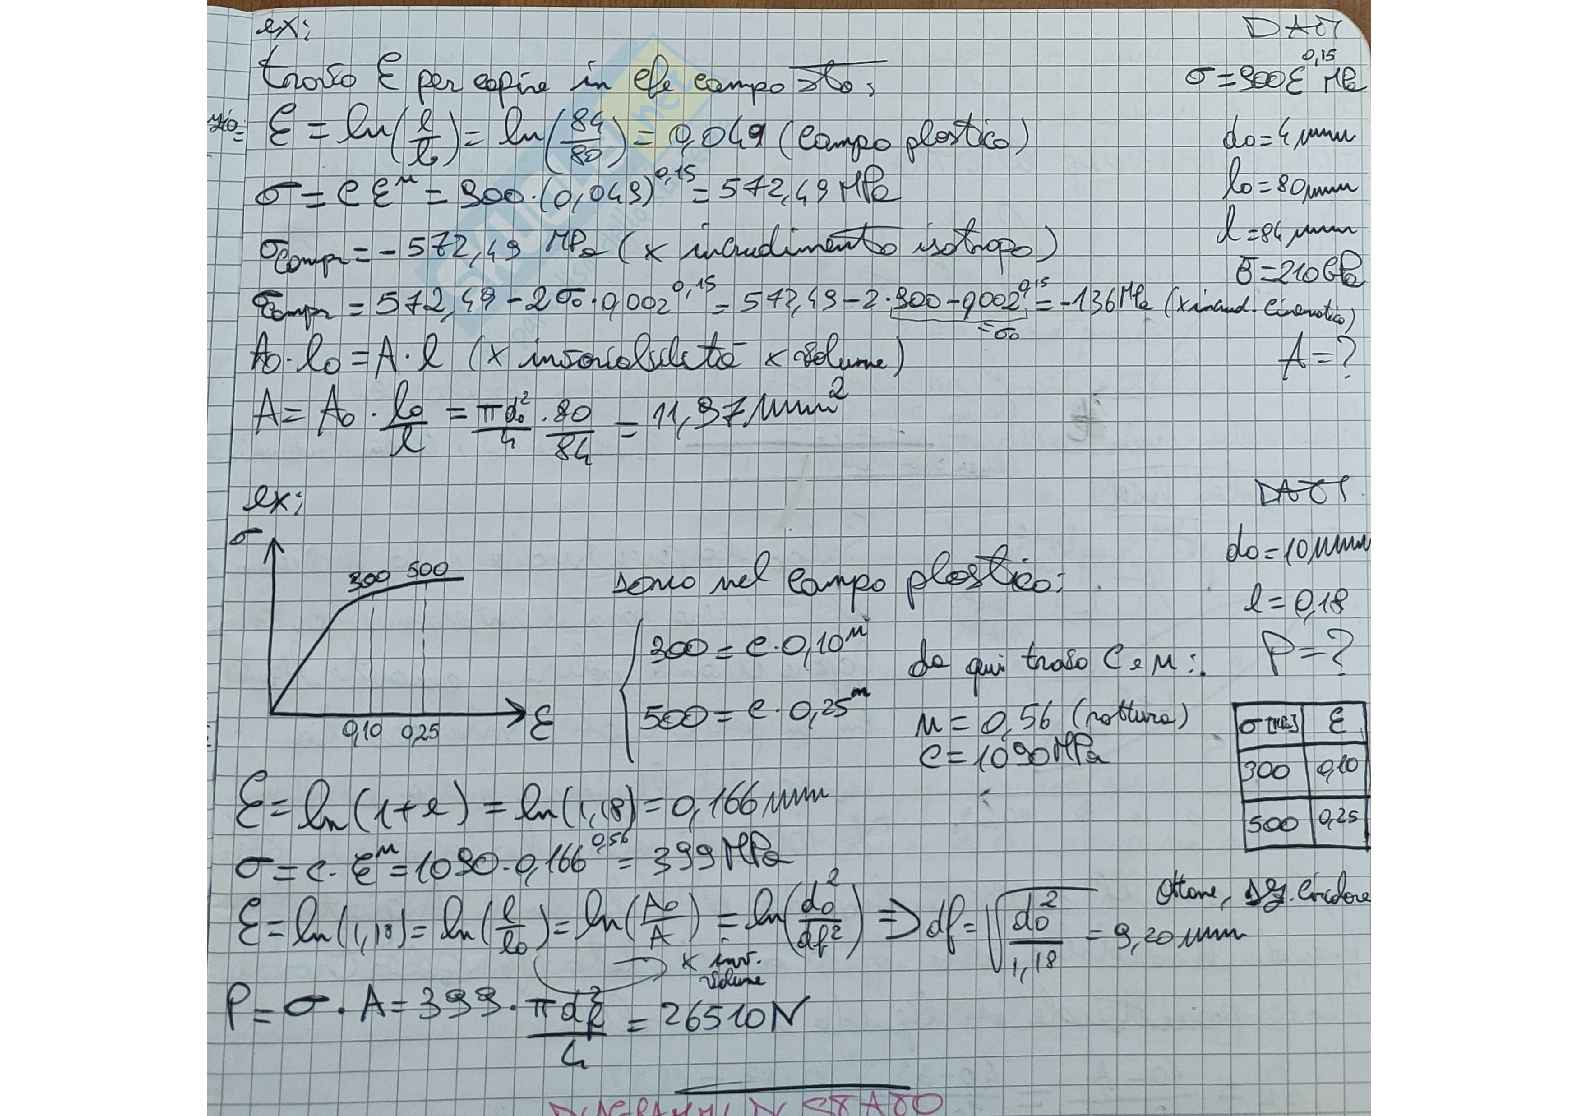 ex:
DATI
trovo ε per capire in che campo sto:
σ=900ε^0,15 MPa
ε = ln(l/l₀) = ln(84/80) = 0,049 (campo plastico)
d₀=4mm
σ = C ε^n = 900·(0,049)^0,15 = 572,49 MPa
l₀=80mm
σcompr = -572,49 MPa (x incrudimento isotropo)
l=84mm
E=210GPa
σcompr = 572,49 - 2σ₀·0,002^0,15 = 572,49 - 2·900-0,002^0,15 = -136MPa (x incrud. cinematico)
=σ₀
A₀·l₀ = A·l (x invariabilità x volume)
A=?
A = A₀ · l₀/l = πd₀²/4 · 80/84 = 11,97mm²
ex:
DATI
σ
300 500
0,10 0,25
ε
sono nel campo plastico:
d₀=10mm
l=0,18
P=?
300 = C·0,10^n
500 = C·0,25^n
da qui trovo C e n:
n = 0,56 (rottura)
C = 1090MPa
σ[MPa] ε
300 0,10
500 0,25
ε = ln(1+e) = ln(1,18) = 0,166mm
σ = C·ε^n = 1090·0,166^0,56 = 399 MPa
Ottone, sz. circolare
ε = ln(1,18) = ln(l/l₀) = ln(A₀/A) = ln(d₀²/df²) ⇒ df = √(d₀²/1,18) = 9,20mm
x inv.
volume
P = σ·A = 399·πdf²/4 = 26510N
DIAGRAMMI DI STATO